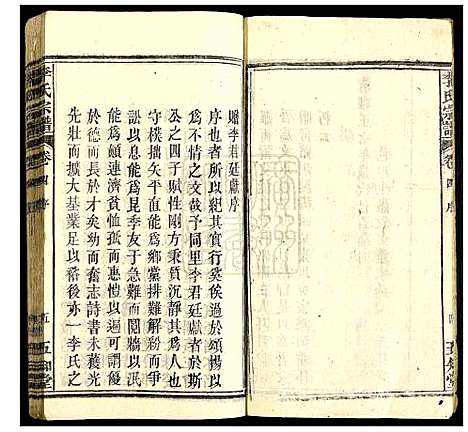 李氏宗譜
卷四
序
五知堂
贈李君廷獻序
序也者所以紀其實行奚俟過於頌揚以
為不情之文哉予同李君廷獻者於斯
公之四子賦性剛方秉質沉靜其為人也
守樸拙矢平直能為鄉黨排難解紛而爭
訟以息能為昆季友于急難而鬩牆以泯
能為顛連濟貧恤孤而惠愷以遍可謂優
於德而長於才矣幼而奮志詩書未獲光
先壯而擴大基業足以啓後亦一李氏之
李氏宗譜
卷四
序
五
五知堂